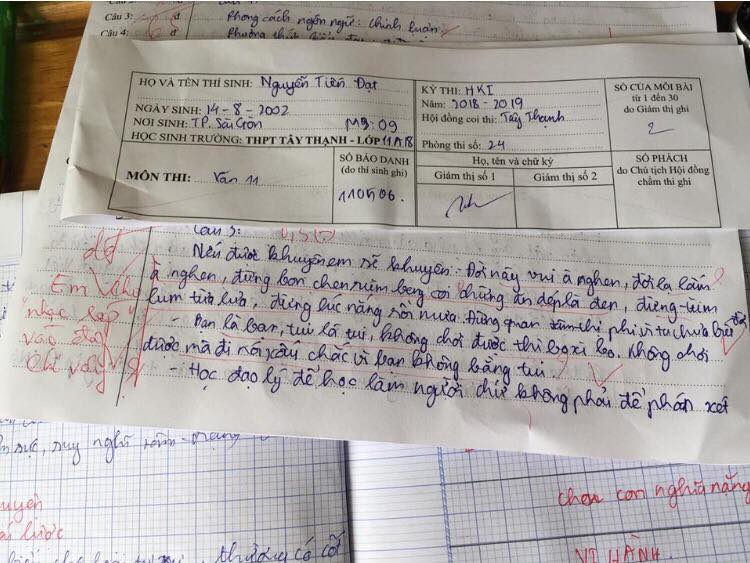 Câu 3: đ
Phong cách ngôn ngữ: chính luận
Câu 4: đ
Phương thức
HỌ VÀ TÊN THÍ SINH: Nguyễn Tiến Đạt
NGÀY SINH: 14-8-2002
NƠI SINH: TP. Sài Gòn MS: 09
HỌC SINH TRƯỜNG: THPT TÂY THẠNH - LỚP 11A18
KỲ THI: HKI
Năm: 2018-2019
Hội đồng coi thi: Tây Thạnh
Phòng thi số: 24
SỐ CỦA MỖI BÀI
từ 1 đến 30
do Giám thị ghi
2
MÔN THI: Văn 11
SỐ BÁO DANH
(do thí sinh ghi)
110506
Họ, tên và chữ ký
Giám thị số 1
Giám thị số 2
SỐ PHÁCH
do Chủ tịch Hội đồng
chấm thi ghi
Câu 3:
Nếu được khuyên em sẽ khuyên: Đời này vui à nghen, đời lạ lắm
à nghen, đừng bon chen rùm beng coi chừng ăn dép lá đen, đừng tùm
lum tùa lua, đừng lúc nắng rồi mưa. Đừng quan tâm thị phi vì ta chưa biết đời
- Bạn là bạn, tui là tui, không chơi được thì bo xì bo. Không chơi
được mà đi nói xấu chắc vì bạn không bằng tui.
- Học đạo lý để học làm người chứ không phải để phán xét
Em
"nhạc rap"
vào đây
chi vậy
suy nghĩ
thường có cốt
chen con nghĩa nặng
VI HÀNH